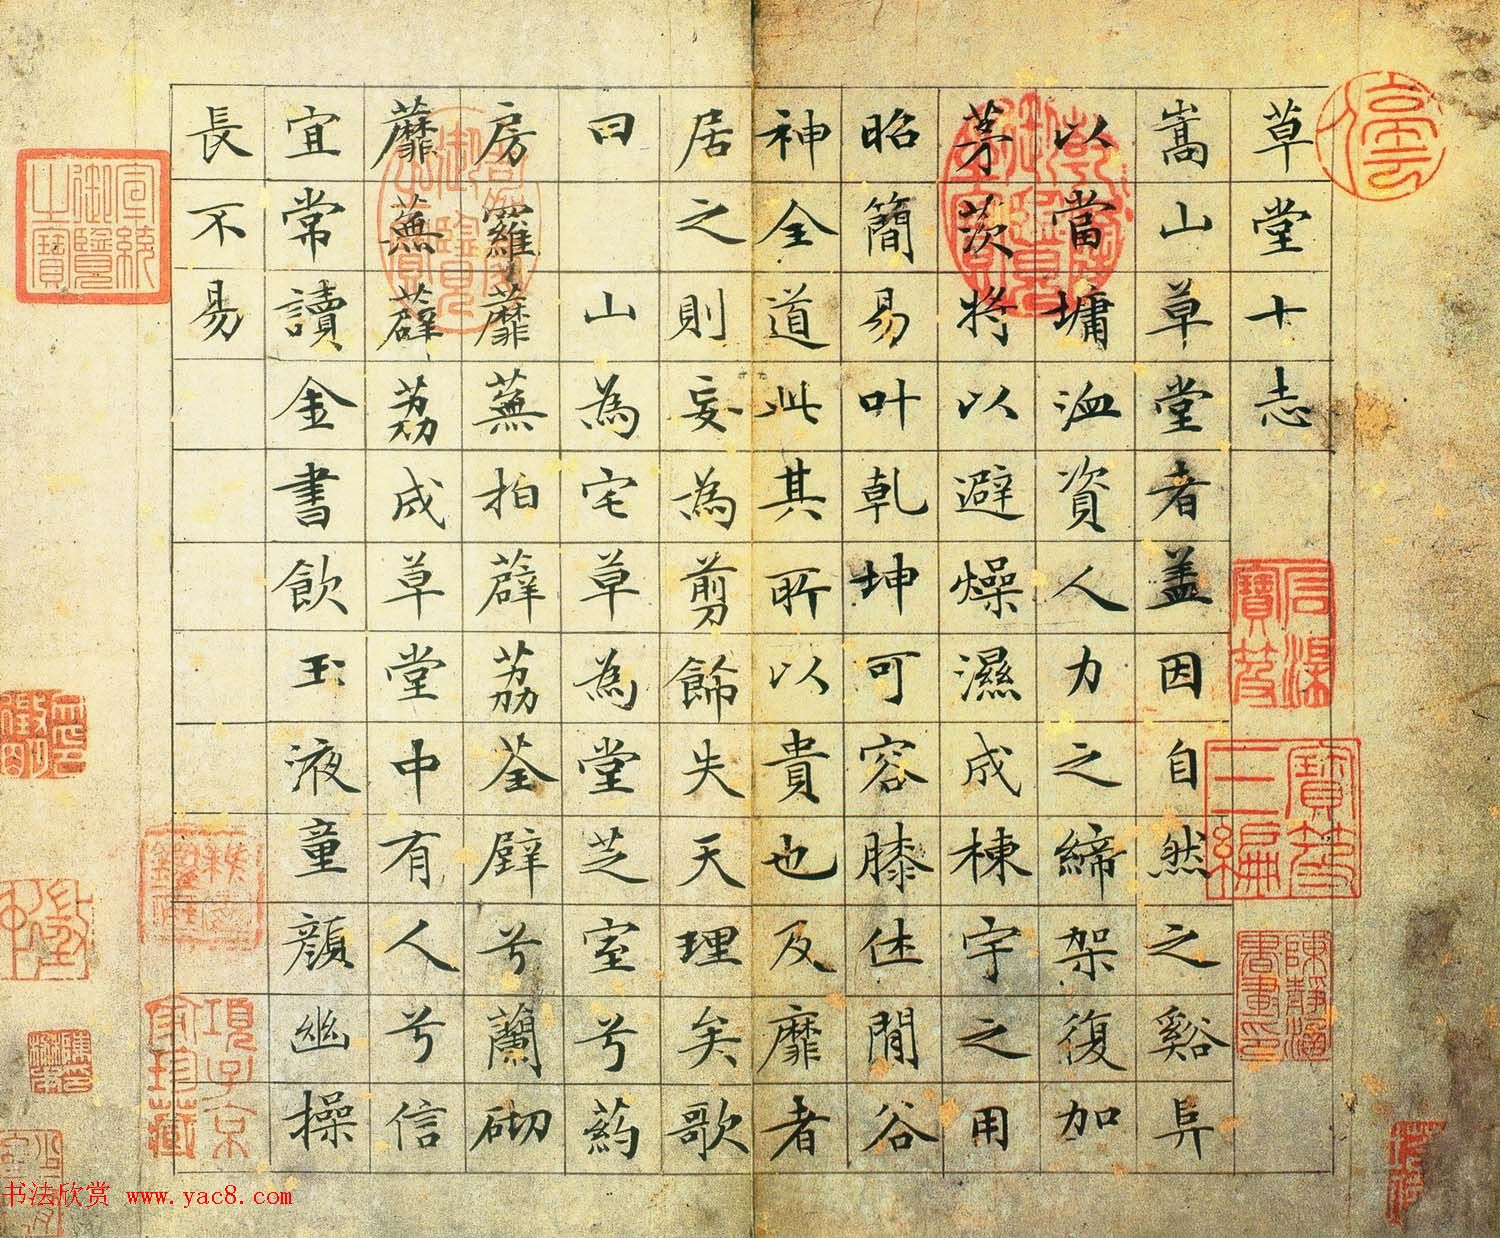 草堂十志
嵩山草堂者蓋因自然之谿阜
以當墉洫資人力之締架復加
茅茨将以避燥濕成棟宇之用
昭簡易叶乹坤可容膝休閒谷
神全道此其所以貴也及靡者
居之則妄為剪餙失天理矣歌
曰 山為宅草為堂芝室兮葯
房羅蘼蕪拍薜荔荃壁兮蘭砌
蘼蕪薜荔成草堂中有人兮信
宜常讀金書飲玉液童顔幽操
長不易
項子京
家珍藏
书法欣赏 www.yac8.com